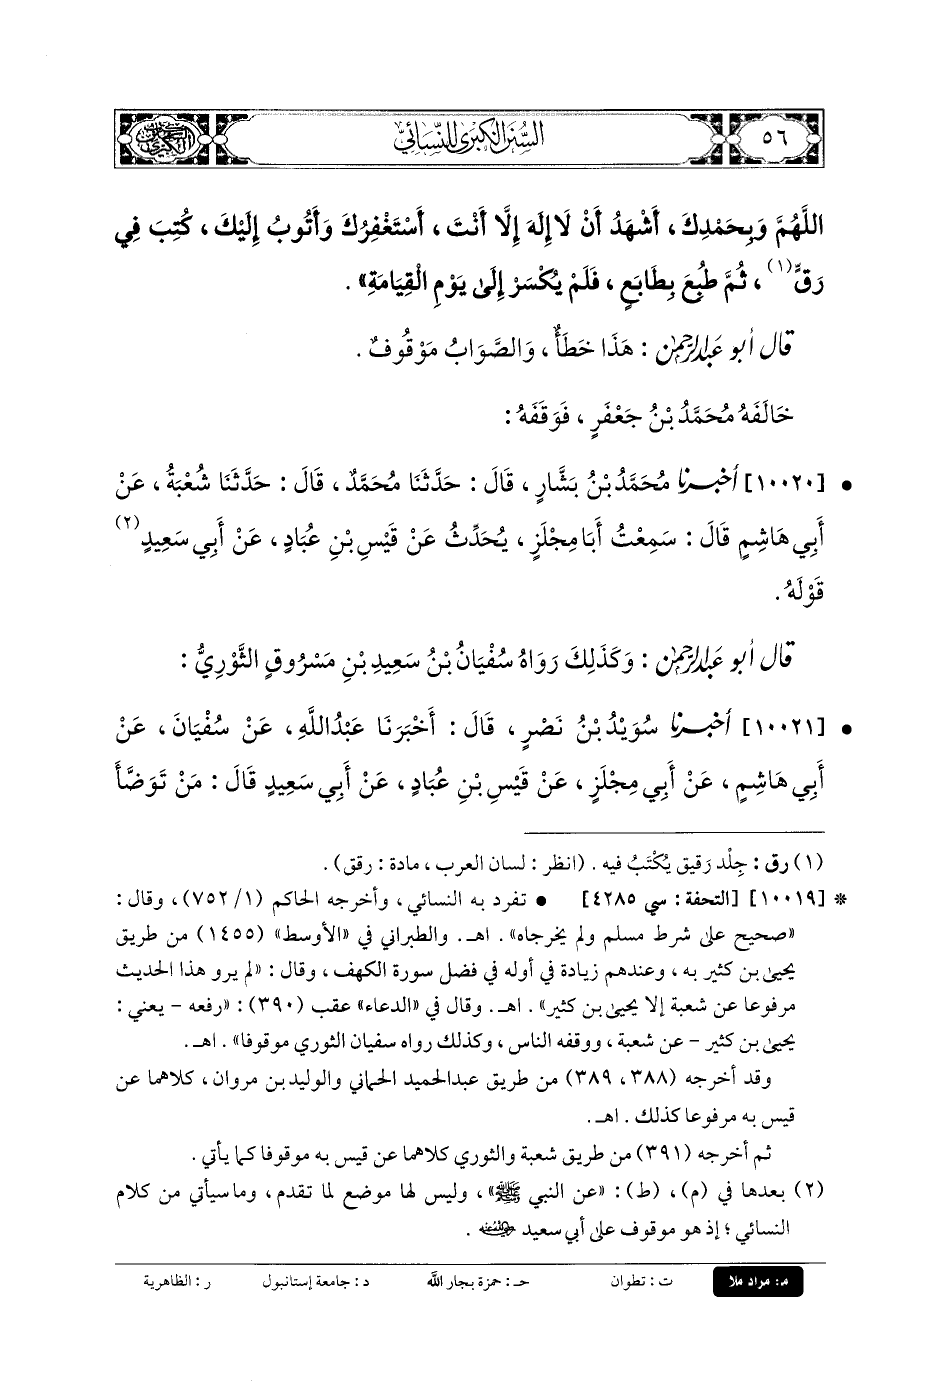 السنن الكبرى للنسائي
٥٦
اللَّهُمَّ وَبِحَمْدِكَ، أَشْهَدُ أَنْ لَا إِلَهَ إِلَّا أَنْتَ، أَسْتَغْفِرُكَ وَأَتُوبُ إِلَيْكَ، كُتِبَ فِي
رَقٍّ(١)، ثُمَّ طُبِعَ بِطَابَعٍ، فَلَمْ يُكْسَرْ إِلَى يَوْمِ الْقِيَامَةِ».
قال أبو عبد الرحمن : هَذَا خَطَأٌ، وَالصَّوَابُ مَوْقُوفٌ.
خَالَفَهُ مُحَمَّدُ بْنُ جَعْفَرٍ، فَوَقَفَهُ:
• [١٠٠٢٠] أخبرنا مُحَمَّدُ بْنُ بَشَّارٍ، قَالَ: حَدَّثَنَا مُحَمَّدٌ، قَالَ: حَدَّثَنَا شُعْبَةُ، عَنْ
أَبِي هَاشِمٍ قَالَ: سَمِعْتُ أَبَا مِجْلَزٍ، يُحَدِّثُ عَنْ قَيْسِ بْنِ عُبَادٍ، عَنْ أَبِي سَعِيدٍ(٢)
قَوْلَهُ.
قال أبو عبد الرحمن : وَكَذَلِكَ رَوَاهُ سُفْيَانُ بْنُ سَعِيدِ بْنِ مَسْرُوقٍ الثَّوْرِيُّ:
• [١٠٠٢١] أخبرنا سُوَيْدُ بْنُ نَصْرٍ، قَالَ: أَخْبَرَنَا عَبْدُ اللَّهِ، عَنْ سُفْيَانَ، عَنْ
أَبِي هَاشِمٍ، عَنْ أَبِي مِجْلَزٍ، عَنْ قَيْسِ بْنِ عُبَادٍ، عَنْ أَبِي سَعِيدٍ قَالَ: مَنْ تَوَضَّأَ
(١) رق : جِلْد رَقيق يُكْتَبُ فيه. (انظر: لسان العرب، مادة: رقق).
* [١٠٠١٩] [التحفة: سي ٤٢٨٥] • تفرد به النسائي، وأخرجه الحاكم (١/ ٧٥٢)، وقال:
«صحيح على شرط مسلم ولم يخرجاه». اهـ. والطبراني في «الأوسط» (١٤٥٥) من طريق
يحيى بن كثير به، وعندهم زيادة في أوله في فضل سورة الكهف، وقال: «لم يرو هذا الحديث
مرفوعا عن شعبة إلا يحيى بن كثير». اهـ. وقال في «الدعاء» عقب (٣٩٠): «رفعه - يعني:
يحيى بن كثير - عن شعبة، ووقفه الناس، وكذلك رواه سفيان الثوري موقوفا». اهـ.
وقد أخرجه (٣٨٨، ٣٨٩) من طريق عبدالحميد الحماني والوليد بن مروان، كلاهما عن
قيس به مرفوعا كذلك. اهـ.
ثم أخرجه (٣٩١) من طريق شعبة والثوري كلاهما عن قيس به موقوفا كما يأتي.
(٢) بعدها في (م)، (ط): «عن النبي ﷺ»، وليس لها موضع لما تقدم، وما سيأتي من كلام
النسائي؛ إذ هو موقوف على أبي سعيد رضي الله عنه.
م: مراد ملا ت: تطوان حـ: حمزة بجار الله د: جامعة إستانبول ر: الظاهرية